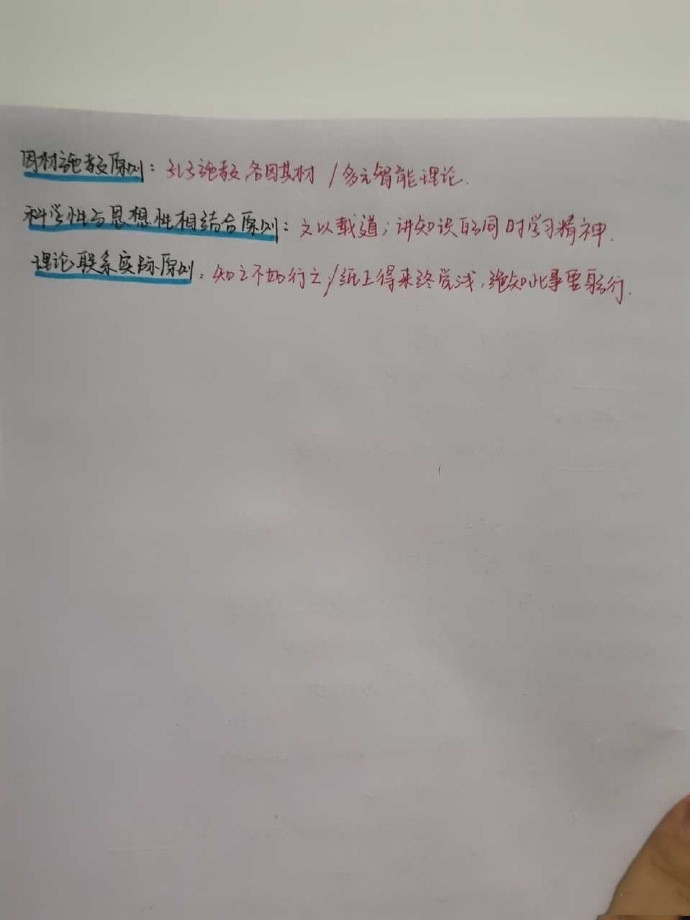 因材施教原则：孔子施教，各因其材 / 多元智能理论.
科学性与思想性相结合原则：文以载道；讲知识的同时学习精神.
理论联系实际原则：知之不如行之；/纸上得来终觉浅，绝知此事要躬行.